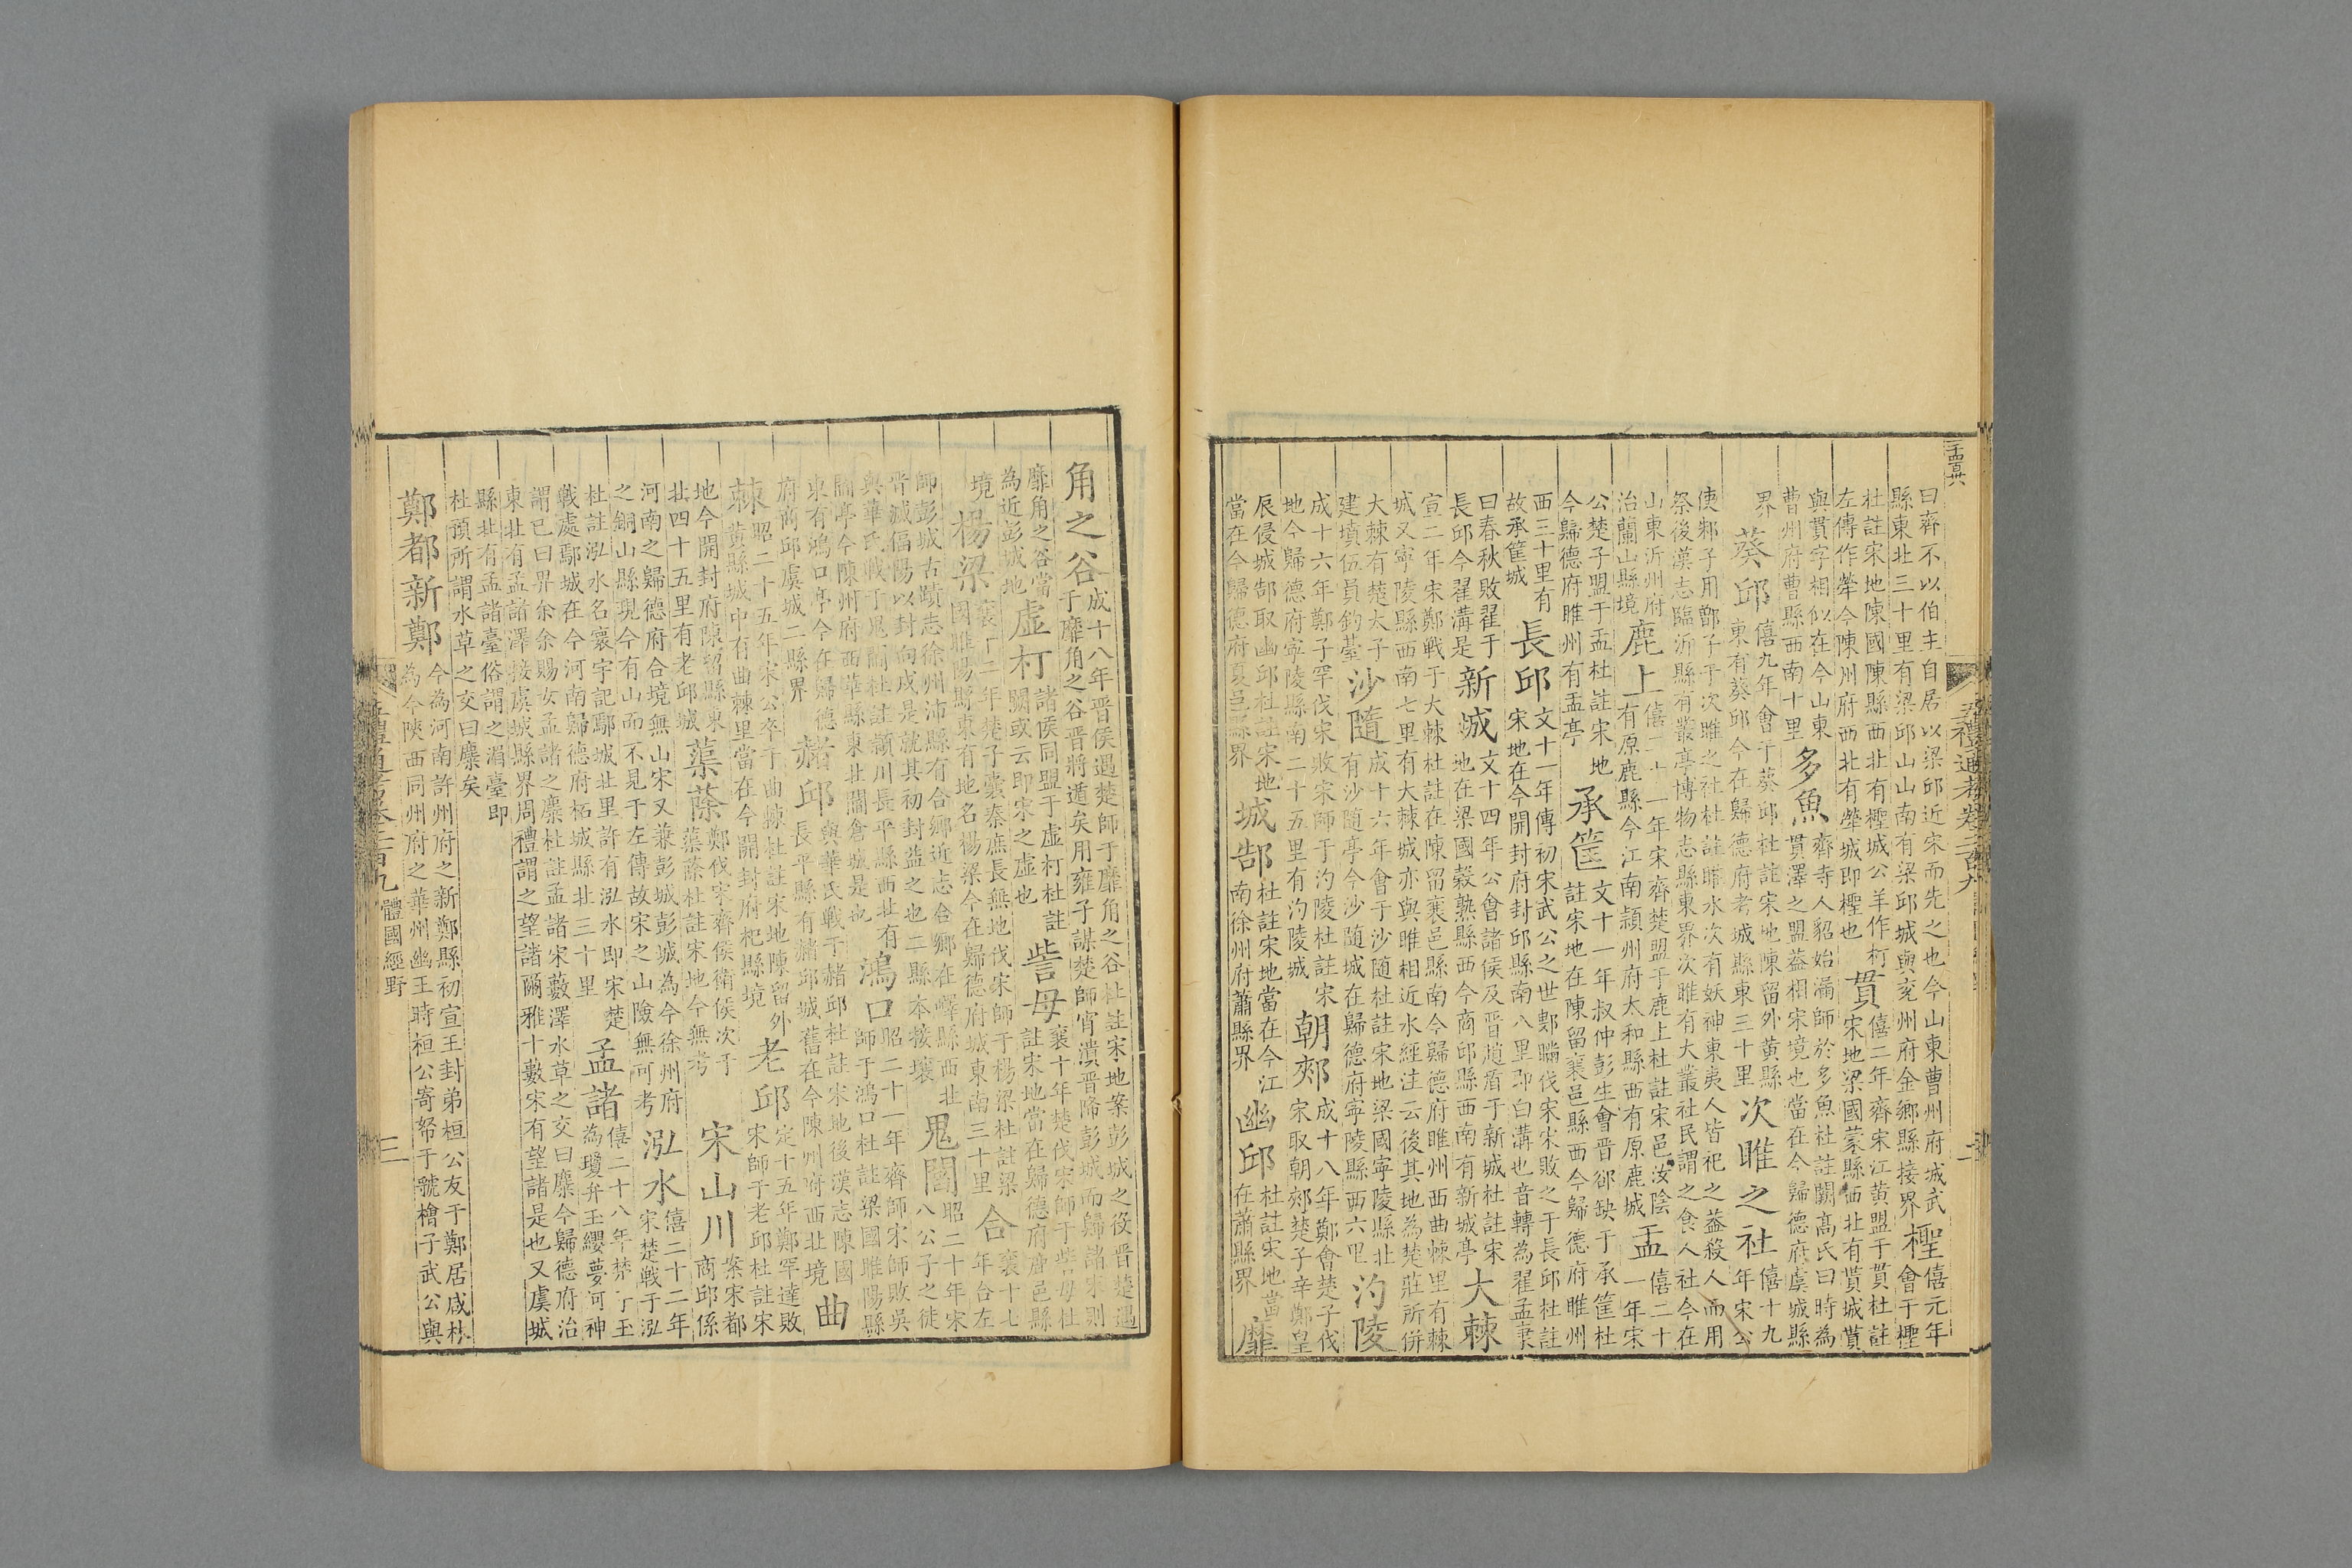 曰齊不以伯主自居以梁邱近宋而先之也今山東曹州府城武
縣東北三十里有梁邱山山南有梁邱城與兗州府金鄉縣接界
檉
僖元年
會于檉
杜註宋地陳國陳縣西北有檉城公羊作朾
左傳作犖今陳州府西北有犖城即檉也
貫
僖二年齊宋江黃盟于貫杜註
宋地梁國蒙縣西北有貰城貰
與貫字相似在今山東
曹州府曹縣西南十里
多魚
齊寺人貂始漏師於多魚杜註闕高氏曰時為
貫澤之盟葢相宋境也當在今歸德府虞城縣
界
葵邱
僖九年會于葵邱杜註宋地陳留外黃縣
東有葵邱今在歸德府考城縣東三十里
次睢之社
僖十九
年宋公
使邾子用鄫子于次睢之社杜註睢水次有妖神東夷人皆祀之葢殺人而用
祭後漢志臨沂縣有叢亭博物志縣東界次睢有大叢社民謂之食人社今在
山東沂州府
治蘭山縣境
鹿上
僖二十一年宋齊楚盟于鹿上杜註宋邑汝陰
有原鹿縣今江南潁州府太和縣西有原鹿城
盂
僖二十
一年宋
公楚子盟于盂杜註宋地
今歸德府睢州有盂亭
承筐
文十一年叔仲彭生會晉郤缺于承筐杜
註宋地在陳留襄邑縣西今歸德府睢州
西三十里有
故承筐城
長邱
文十一年傳初宋武公之世鄋瞞伐宋宋敗之于長邱杜註
宋地在今開封府封邱縣南八里即白溝也音轉為翟孟秉
曰春秋敗翟于
長邱今翟溝是
新城
文十四年公會諸侯及晉趙盾于新城杜註宋
地在梁國穀熟縣西今商邱縣西南有新城亭
大棘
宣二年宋鄭戰于大棘杜註在陳留襄邑縣南今歸德府睢州西曲棘里有棘
城又寧陵縣西南七里有大棘城亦與睢相近水經注云後其地為楚莊所併
大棘有楚太子
建墳伍員釣臺
沙隨
成十六年會于沙隨杜註宋地梁國寧陵縣北
有沙隨亭今沙隨城在歸德府寧陵縣西六里
汋陵
成十六年鄭子罕伐宋敗宋師于汋陵杜註宋
地今歸德府寧陵縣南二十五里有汋陵城
朝郟
成十八年鄭會楚子伐
宋取朝郟楚子辛鄭皇
辰侵城郜取幽邱杜註宋地
當在今歸德府夏邑縣界
城郜
杜註宋地當在今江
南徐州府蕭縣界
幽邱
杜註宋地當
在蕭縣界
靡
角之谷
成十八年晉侯遇楚師于靡角之谷杜註宋地案彭城之役晉楚遇
于靡角之谷晉將遁矣用雍子謀楚師宵潰晉降彭城而歸諸宋則
靡角之谷當
為近彭城地
虛朾
諸侯同盟于虛朾杜註
闕或云即宋之虛也
訾母
襄十年楚伐宋師于訾母杜
註宋地當在歸德府鹿邑縣
境
楊梁
襄十二年楚子囊秦庶長無地伐宋師于楊梁杜註梁
國睢陽縣東有地名楊梁今在歸德府城東南三十里
合
襄十七
年合左
師彭城古蹟志徐州沛縣有合鄉近志合鄉在嶧縣西北
晉滅偪陽以封向戌是就其初封益之也二縣本接壤
鬼閻
昭二十年宋
八公子之徒
與華氏戰于鬼閻杜註潁川長平縣西北有
閻亭今陳州府西華縣東北閻倉城是也
鴻口
昭二十一年齊師宋師敗吳
師于鴻口杜註梁國睢陽縣
東有鴻口亭今在歸德
府商邱虞城二縣界
赭邱
與華氏戰于赭邱杜註宋地後漢志陳國
長平縣有赭邱城舊在今陳州府西北境
曲
棘
昭二十五年宋公卒于曲棘杜註宋地陳留外
黃縣城中有曲棘里當在今開封府杞縣境
老邱
定十五年鄭罕達敗
宋師于老邱杜註宋
地今開封府陳留縣東
北四十五里有老邱城
蕖蒢
鄭伐宋齊侯衛侯次于
蕖蒢杜註宋地今無考
宋山川
案宋都
商邱係
河南之歸德府合境無山宋又兼彭城彭城為今徐州府
之銅山縣現今有山而不見于左傳故宋之山險無可考
泓水
僖二十二年
宋楚戰于泓
杜註泓水名寰宇記鄢城北里許有泓水即宋楚
戰處鄢城在今河南歸德府柘城縣北三十里
孟諸
僖二十八年楚子玉
為瓊弁玉纓夢河神
謂已曰畀余余賜女孟諸之麋杜註孟諸宋藪澤水草之交曰麋今歸德府治
東北有孟諸澤接虞城縣界周禮謂之望諸爾雅十藪宋有望諸是也又虞城
縣北有孟諸臺俗謂之湄臺即
杜預所謂水草之交曰麋矣
鄭都新鄭
今為河南許州府之新鄭縣初宣王封弟桓公友于鄭居咸林
為今陝西同州府之華州幽王時桓公寄帑于虢檜子武公與
體國經野
三